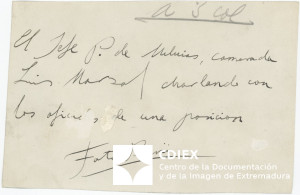 A 3 col
El Jefe P. de Milicias, camarada
Luis Marzal charlando con
los oficiales de una posicion
Foto
CDIEX
Centro de la Documentación
y de la Imagen de Extremadura